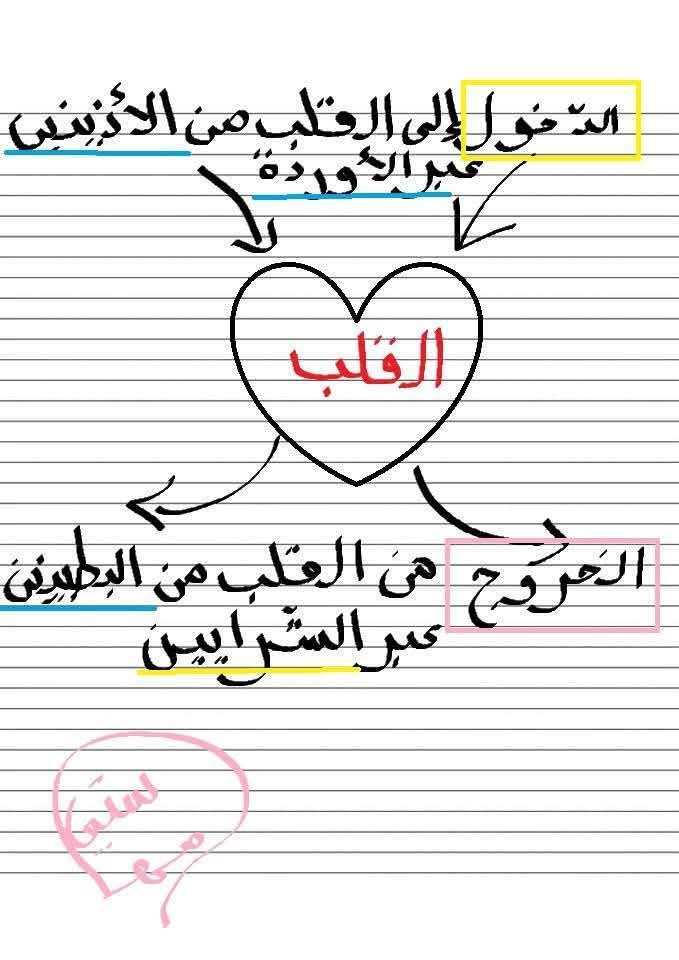 الدّخول إلى القلب من الأذينين
عبر الأوردة
القلب
الخروج من القلب من البطينين
عبر الشّرايين